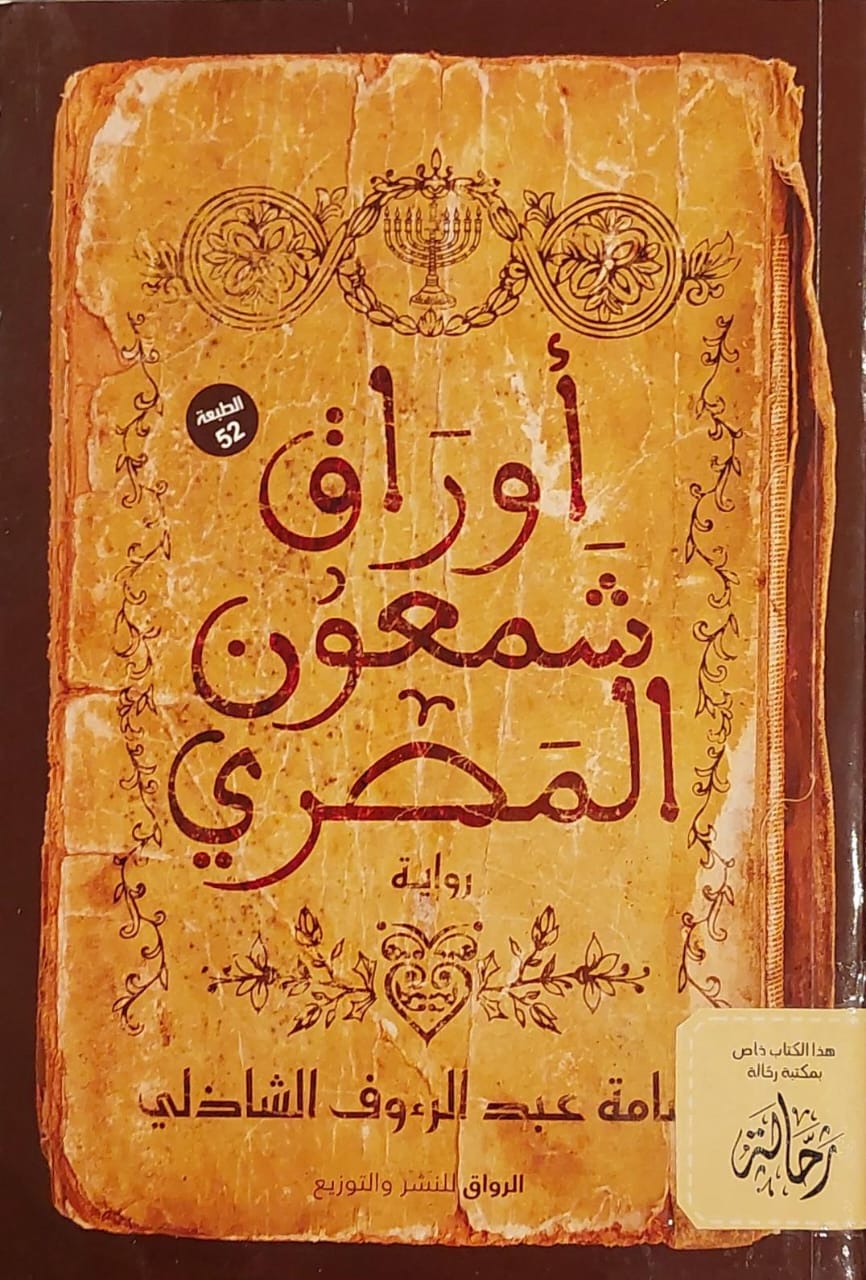 الطبعة
52
أَورَاق
شَمعُون
المَصري
رواية
عبد الرءوف الشاذلي
الرواق للنشر والتوزيع
هذا الكتاب خاص
بمكتبة رحالة
رَحَّالة